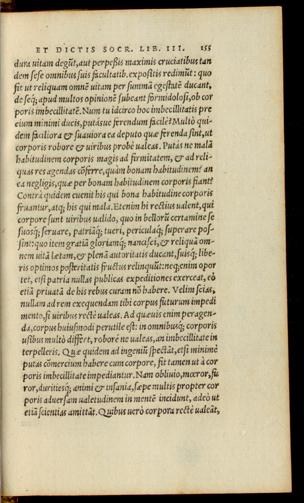 ET DICTIS SOCR. LIB. III. 155
dura uitam degũt, aut perpeßis maximis cruciatibus tan
dem sese omnibus suis facultatib. expositis redimũt: quo
fit ut reliquam omnẽ uitam per summã egestatẽ ducant,
de seq́; apud multos opinionẽ subeant formidolosi, ob cor
poris imbecillitatẽ. Num tu idcirco hoc imbecillitatis præ
eium minimi ducis, putásue ferendum facilè? Multò qui-
dem faciliora & suauiora ea deputo quæ ferenda sint, ut
corporis robore & uiribus probè ualeas. Putás ne malã
habitudinem corporis magis ad firmitatem, & ad reli-
quas res agendas cõferre, quàm bonam habitudinem? an
ea negligis, quæ per bonam habitudinem corporis fiant?
Contrà quidem euenit his qui bona habitudine corporis
fruantur, atq; his qui mala. Etenim hi rectius ualent, qui
corpore sunt uiribus ualido, quo in bellorũ certamine se
suosq́; seruare, patriãq́; tueri, periculaq́; superare pos-
sint: quo item gratiã gloriamq́; nanciscì, & reliquã om-
nem uitã lætam, & plenã autoritatis ducant, suisq́; libe-
ris optimos posteritatis fructus relinquũt: neq; enim opor
tet, etsi patria nullas publicas expeditiones exerceat, cò
etiã priuatã de his rebus curam nõ habere. Velim scias,
nullam ad rem exequendam tibi corpus futurum impedi
mento, si uiribus rectè ualeas. Ad quæuis enim peragen-
da, corpus huiusmodi perutile est: in omnibusq́; corporis
usibus multò differt, robore ne ualeas, an imbecillitate in
terpelleris. Quæ quidem ad ingeniũ spectãt, etsi minimè
putas cõmercium habere cum corpore, fit tamen ut à cor
poris imbecillitate impediantur. Nam obliuio, mœror, fu
ror, duritiesq́; animi & insania, sæpe multis propter cor
poris aduersam ualetudinem in mentẽ incidunt, adeò ut
etiã scientias amittãt. Quibus uerò corpora rectè ualeãt,